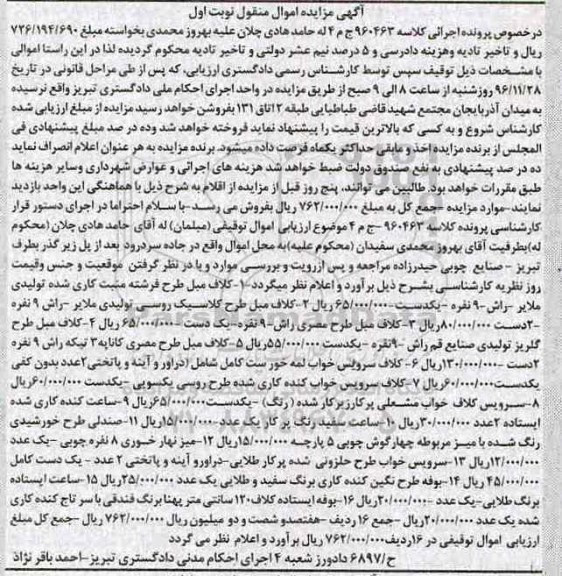 آگهی مزایده اموال منقول نوبت اول
درخصوص پرونده اجرائی کلاسه ۹۶۰۴۶۳ ج م ۴ له حامد هادی چلان علیه بهروز محمدی بخواسته مبلغ ۷۳۶/۱۹۴/۶۹۰
ریال و تاخیر تادیه وهزینه دادرسی و ۵ درصد نیم عشر دولتی و تاخیر تادیه محکوم گردیده لذا در این راستا اموالی
با مشخصات ذیل توقیف سپس توسط کارشناس رسمی دادگستری ارزیابی، که پس از طی مراحل قانونی در تاریخ
۹۶/۱۱/۲۸ روزشنبه از ساعت ۸ الی ۹ صبح از طریق مزایده در واحد اجرای احکام ملی دادگستری تبریز واقع نرسیده
به میدان آذربایجان مجتمع شهید قاضی طباطبایی طبقه ۲ اتاق ۱۳۱ بفروشن خواهد رسید مزایده از مبلغ ارزیابی شده
کارشناس شروع و به کسی که بالاترین قیمت را پیشنهاد نماید فروخته خواهد شد وده در صد مبلغ پیشنهادی فی
المجلس از برنده مزایده اخذ و مابقی حداکثر یکماه فرصت داده میشود. برنده مزایده به هر عنوان اعلام انصراف نماید
ده در صد پیشنهادی به نفع صندوق دولت ضبط خواهد شد هزینه های اجرائی و عوارض شهرداری وسایر هزینه ها
طبق مقررات خواهد بود. طالبین می توانند، پنج روز قبل از مزایده از اقلام به شرح ذیل با هماهنگی این واحد بازدید
نمایند-موارد مزایده -جمع کل به مبلغ ۷۶۲/۰۰۰/۰۰۰ ریال بفروش می رسد-با سلام احتراما در اجرای دستور قرار
کارشناسی پرونده کلاسه ۹۶۰۴۶۳ -ج م ۴ موضوع ارزیابی اموال توقیفی (مبلمان) له آقای حامد هادی چلان (محکوم
له)بطرفیت آقای بهروز محمدی سفیدان (محکوم علیه)به محل اموال واقع در جاده سردرود بعد از پل زیر گذر بطرف
تبریز - صنایع چوبی حیدرزاده مراجعه و پس ازرویت و بررسی موارد و با در نظر گرفتن موقعیت و جنس وقیمت
روز نظریه کارشناسی بشرح ذیل برآورد و اعلام نظر میگردد-۱-کلاف مبل طرح فرشته منبت کاری شده تولیدی
ملایر -راش -۹نفره -یکدست-۶۵/۰۰۰/۰۰۰ ریال ۲-کلاف مبل طرح کلاسیک روسی تولیدی ملایر -راش ۹ نفره
-۲دست ۸۰/۰۰۰/۰۰۰ریال ۳-کلاف مبل طرح مصری راش-۹ نفره-یک دست ۶۵/۰۰۰/۰۰۰ ریال ۴-کلاف مبل طرح
گلریز تولیدی صنایع قم راش -۹نفره -یکدست ۵۵/۰۰۰/۰۰۰ریال ۵-کلاف مبل طرح مصری کاناپه۳ تیکه راش ۹ نفره
۲دست -۱۳۰/۰۰۰/۰۰۰ریال ۶- کلاف سرویس خواب لمه خور ست کامل شامل (دراور و آینه و پاتختی۲عدد بدون کفی
یکدست۶۰/۰۰۰/۰۰۰ ریال ۷-کلاف سرویس خواب کنده کاری شده طرح روسی یکسویی -یکدست ۶۰/۰۰۰/۰۰۰ریال
۸-سرویس کلاف خواب مشعلی پرکارزیرکار شده (رنگ) -یکدست-۶۵/۰۰۰/۰۰۰ریال ۹-ساعت کنده کاری شده
ایستاده ۲عدد ۳۰/۰۰۰/۰۰۰ریال ۱۰-ساعت سفید رنگ پر کار یک عدد ۱۵/۰۰۰/۰۰۰ریال ۱۱-صندلی طرح خورشیدی
رنگ شده با میز مربوطه چهارگوش چوبی ۵ پارچه ۱۵/۰۰۰/۰۰۰ریال ۱۲-میز نهار خوری ۸ نفره چوبی -یک عدد
۱۲/۰۰۰/۰۰۰ریال ۱۳-سرویس خواب طرح حلزونی شده پرکار طلایی-دراورو آینه و پاتختی ۲ عدد - یک دست کامل
۴۵/۰۰۰/۰۰۰ ریال ۱۴-بوفه طرح نگین کنده کاری برنگ سفید و طلایی یک عدد ۲۵/۰۰۰/۰۰۰ریال ۱۵-ساعت ایستاده
برنگ طلایی-یک عدد -۲۰/۰۰۰/۰۰۰ریال ۱۶-بوفه ایستاده کلاف۱۲۰ سانتی متر پهنا برنگ فندقی با سر تاج کنده کاری
شده یک عدد ۲۰/۰۰۰/۰۰۰ریال -جمع ۱۶ ردیف -هفتصدو شصت و دو میلیون ریال ۷۶۲/۰۰۰/۰۰۰ ریال -جمع کل مبلغ
ارزیابی اموال توقیفی در ۱۶ردیف۷۶۲/۰۰۰/۰۰۰ ریال برآورد و اعلام نظر می گردد
ح/۶۸۹۷ دادورز شعبه ۴ اجرای احکام مدنی دادگستری تبریز-احمد باقر نژاد